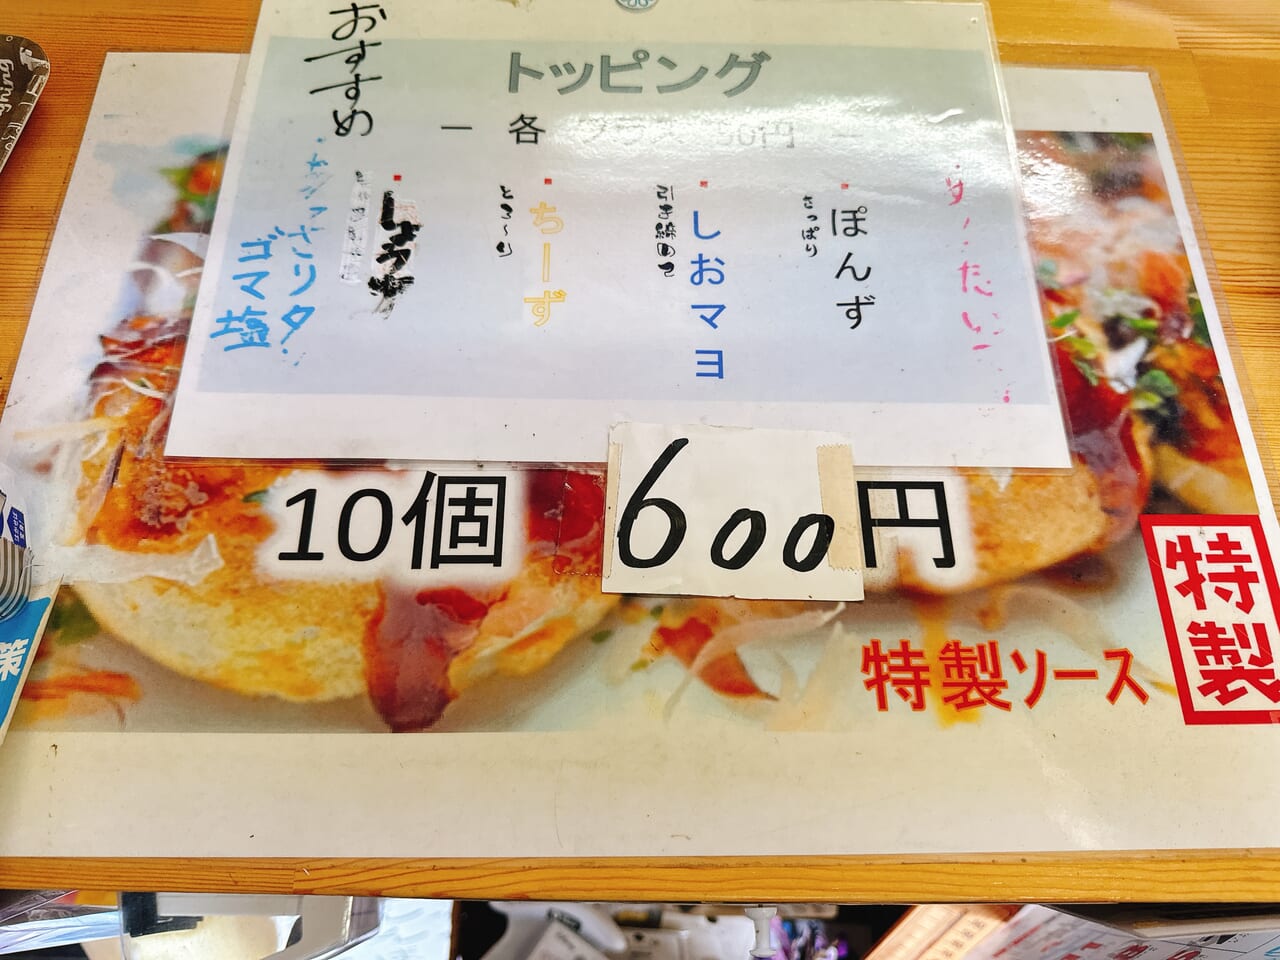 おすすめ
トッピング
ー 各 プラス 50円 ー
ぽんず
さっぱり
しおマヨ
引き締める
ちーず
とろ〜り
しょうゆ
あっさりタイ
ゴマ塩
10個 600円
特製ソース
特製